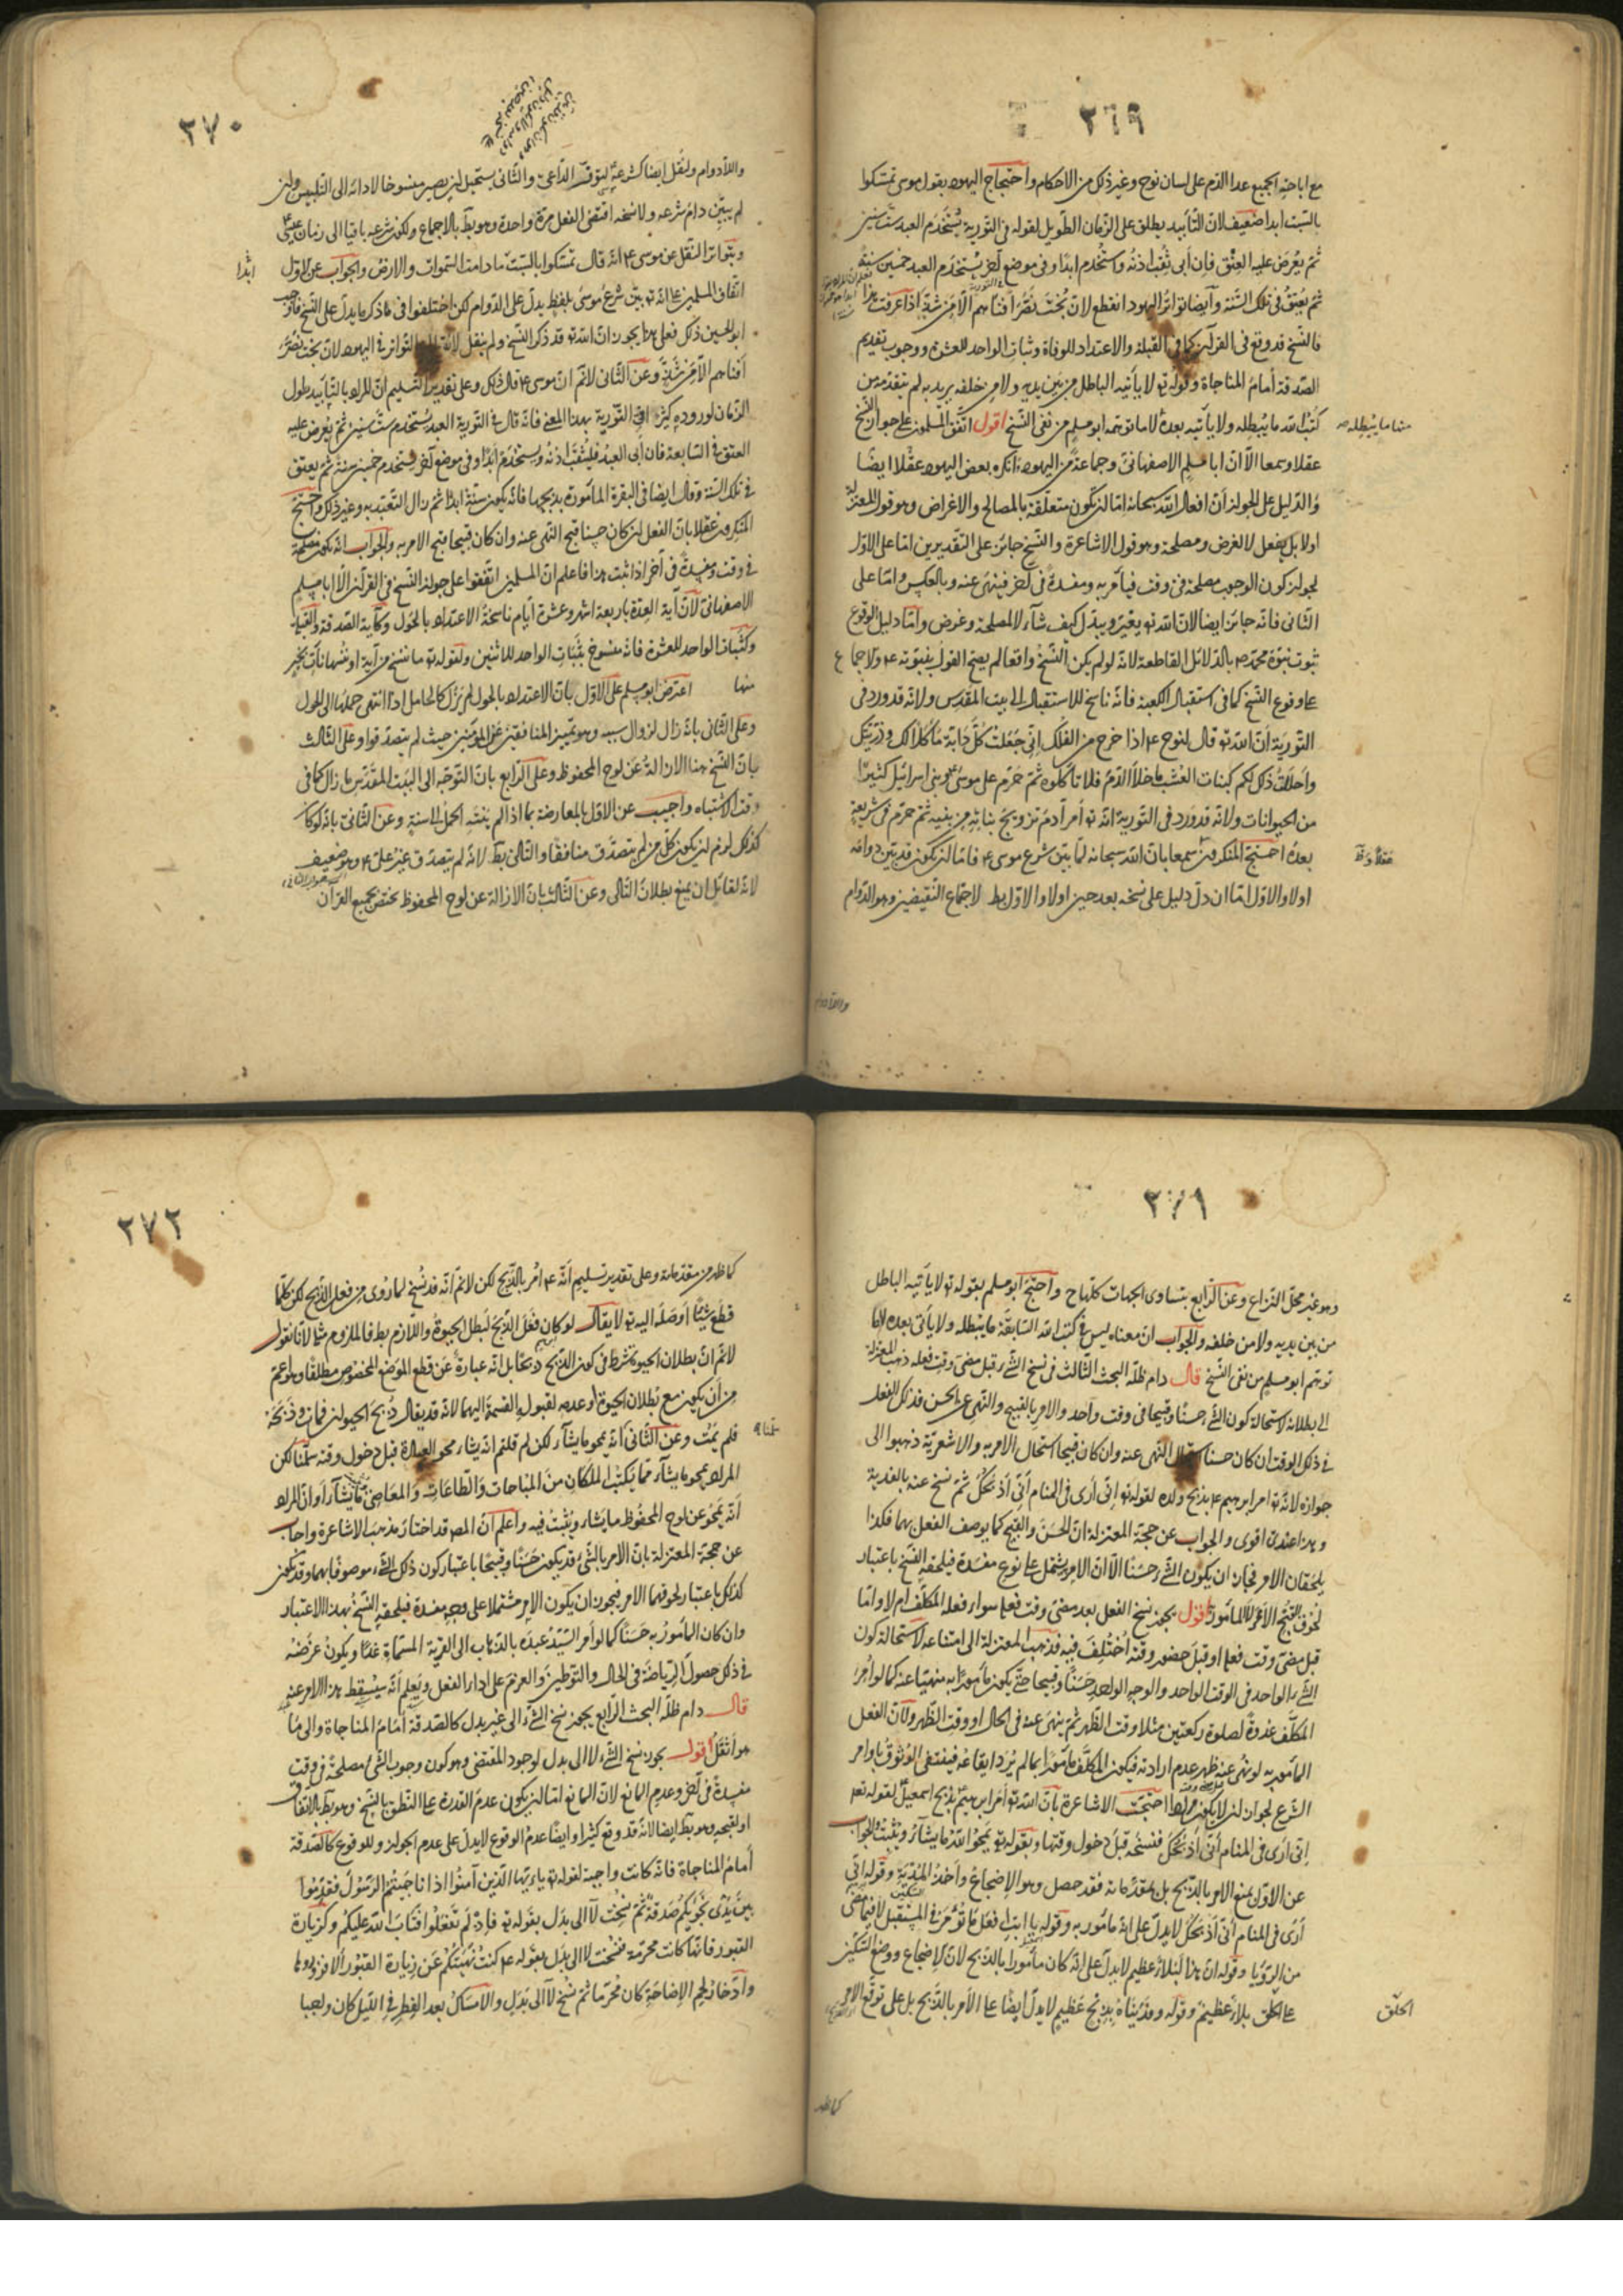 ٢٦٩
مع اباحة الجميع عدا الدم على لسان نوح وغير ذلك من الاحكام واحتجاج اليهود بقول موسى تمسكوا
بالسبت ابدا ضعيف لان التأبيد يطلق على الزمان الطويل لقوله فى التورية يستخدم العبد ست سنين
ثم يعرض عليه العتق فان أبى ثقب اذنه واستخدم ابدا وفى موضع آخر يستخدم العبد خمسين سنة
ثم يعتق فى تلك السنة وأيضا تواتر اليهود انقطع لان بخت نصر افناهم الا من شذ اذا عرفت هذا
فالنسخ قد وقع فى القرآن كما فى القبلة والاعتداد للوفاة وثبات الواحد للعشرة ووجوب تقديم
الصدقة أمام المناجاة وقوله تع لا يأتيه الباطل من بين يديه ولا من خلفه يريد به لم يتقدمه من
كتب الله ما يبطله ولا يأتيه بعده لا ما توهمه ابو مسلم من نفى النسخ اقول اتفق المسلمون على جواز النسخ
عقلا وسمعا الا ان ابا مسلم الاصفهانى وجماعة من اليهود انكره بعض اليهود عقلا ايضا
والدليل على الجواز أن افعال الله سبحانه اما ان تكون متعلقة بالمصالح والاغراض وهو قول المعتزلة
اولا بل يفعل لا لغرض ومصلحة وهو قول الاشاعرة والنسخ جائز على التقديرين اما على الاول
لجواز كون الوجوب مصلحة فى وقت فيأمر به ومفسدة فى آخر فينهى عنه وبالعكس واما على
الثانى فانه جائز ايضا لان الله تع يغير ويبدل كيف شآء لا لمصلحة وغرض وأما دليل الوقوع
ثبوت نبوة محمد ص بالدلائل القاطعة لانه لو لم يكن النسخ واقعا لم يصح القول بنبوته ع ولاجماع
على وقوع النسخ كما فى استقبال الكعبة فانه ناسخ للاستقبال الى بيت المقدس ولانه قد ورد فى
التورية ان الله تع قال لنوح ع اذا خرج من الفلك انى جعلت كل دابة مأكلا لك وذريتك
واحللت ذلك لكم كنبات العشب ما خلا الدم فلا تأكلوه ثم حرم على موسى وبنى اسرائيل كثيرا
من الحيوانات ولانه قد ورد فى التورية انه تع أمر آدم تزويج بناته من بنيه ثم حرم فى شريعة
بعده احتج المنكرون سمعا بان الله سبحانه لما بين شرع موسى ع فاما ان يكون قد بين دوامه
اولا والاول اما ان دل دليل على نسخه بعد حين اولا والاول بط لاجتماع النقيضين وهو الدوام
واللادوام
٢٧٠
واللادوام ولنقل ايضا كشرعه لتوفر الداعى والثانى يستحيل ان يصير منسوخا لادائه الى التلبيس وان
لم يبين دام شرعه ولا نسخه اقتضى الفعل مرة واحدة وهو بط بالاجماع ولكون شرعه باقيا الى زمان عيسى ع
وبتواتر النقل عن موسى ع انه قال تمسكوا بالسبت ما دامت السموات والارض والجواب عن الاول
ابدا
اتفاق المسلمين على انه تع بين شرع موسى بلفظ يدل على الدوام لكن اختلفوا فى ما ذكر ما يدل على النسخ فاوجب
ابو الحسين ذلك فعلى هذا يجوز ان الله تع قد ذكر النسخ ولم ينقل لانقطاع التواتر فى اليهود لان بخت نصر
أفناهم الا من شذ وعن الثانى لا نم ان موسى ع قال ذلك وعلى تقدير التسليم ان المراد بالتأبيد طول
الزمان لوروده كثيرا فى التورية بهذا المعنى فانه قال فى التورية العبد يستخدم ست سنين ثم يعرض عليه
العتق فى السابعة فان أبى العبد فليثقب اذنه ويستخدم أبدا وفى موضع آخر يستخدم خمسين سنة ثم يعتق
فى تلك السنة وقال ايضا فى البقرة المأمورة بذبحها فانه يكون سنة ابدا ثم زال التعبد به وغير ذلك واحتج
المنكرون عقلا بان الفعل ان كان حسنا قبح النهى عنه وان كان قبيحا قبح الامر به والجواب انه يكون مصلحة
فى وقت ومفسدة فى آخر اذا ثبت هذا فاعلم ان المسلمين اتفقوا على جواز النسخ فى القرآن الا ابا مسلم
الاصفهانى لان آية العدة باربعة اشهر وعشرة أيام ناسخة الاعتداد بالحول وكآية الصدقة والقبلة
وكثبات الواحد للعشرة فانه منسوخ بثبات الواحد للاثنين ولقوله تع ما ننسخ من آية او ننسها نأت بخير
منها اعترض ابو مسلم على الاول بان الاعتداد بالحول لم يزل كالحامل اذا انتهى حملها الى الحول
وعلى الثانى بانه زال لزوال سببه وهو تمييز المنافقين عن المؤمنين حيث لم يتصدقوا وعلى الثالث
بان النسخ هنا الازالة عن لوح المحفوظ وعلى الرابع بان التوجه الى البيت المقدس ما زال كما فى
وقت الاشتباه واجيب عن الاول بالمعارضة بما اذا لم ينته الحمل الى سنة وعن الثانى بانه لو كان
كذلك لزم ان يكون كل من لم يتصدق منافقا والتالى بط لانه لم يتصدق غير على ع وهو ضعيف
لانه لقائل ان يمنع بطلان التالى وعن الثالث بان الازالة عن لوح المحفوظ يختص بجميع القرآن
٢٧١
وهو غير محل النزاع وعن الرابع بتساوى الجهات كلها ح واحتج ابو مسلم بقوله تع لا يأتيه الباطل
من بين يديه ولا من خلفه والجواب ان معناه ليس فى كتب الله السابقة ما يبطله ولا يأتى بعده لا ما
توهم ابو مسلم من نفى النسخ قال دام ظله البحث الثالث فى نسخ الشىء قبل مضى وقت فعله ذهب المعتزلة
الى بطلانه لاستحالة كون الشىء حسنا وقبيحا فى وقت واحد والامر بالقبيح والنهى عن الحسن فذلك الفعل
فى ذلك الوقت ان كان حسنا استحال النهى عنه وان كان قبيحا استحال الامر به والاشعرية ذهبوا الى
جوازه لانه تع امر ابرهيم ع بذبح ولده لقوله تع انى أرى فى المنام أنى أذبحك ثم نسخ عنه بالفدية
وهذا عندى اقوى والجواب عن حجة المعتزلة ان الحسن والقبح كما يوصف الفعل بهما فكذا
يلحقان الامر فجاز ان يكون الشىء حسنا الا ان الامر يشتمل على نوع مفسدة فيلحقه النسخ باعتبار
لحوق القبح الامر لا المأمور اقول يجوز نسخ الفعل بعد مضى وقت فعله سواء فعله المكلف ام لا واما
قبل مضى وقت فعله او قبل حضور وقته اختلف فيه فذهب المعتزلة الى امتناعه لاستحالة كون
الشىء الواحد فى الوقت الواحد والوجه الواحد حسنا وقبيحا حتى يكون مأمورا به منهيا عنه كما لو امر
المكلف غدوة لصلوة ركعتين مثلا وقت الظهر ثم ينهى عنه فى الحال او وقت الظهر ولان الفعل
المأمور به لو نهى عنه ظهر عدم ارادته فيكون المكلف مأمورا بما لم يرد ايقاعه فينتفى الوثوق باوامر
الشرع لجواز ان لا يكون مرادا احتجت الاشاعرة بان الله تع أمر ابرهيم بذبح اسمعيل لقوله تع
انى أرى فى المنام أنى أذبحك فنسخه قبل دخول وقتها وبقوله تع يمحوا الله ما يشآء ويثبت والجواب
عن الاول بمنع الامر بالذبح بل بمقدماته فقد حصل وهو الاضجاع وأخذ المدية وقوله انى
أرى فى المنام أنى أذبحك لا يدل على انه مأمور به وقوله يا ابت افعل ما تؤمر فى المستقبل لا فيما مضى
من الرؤيا وقوله ان هذا لبلاء عظيم لا يدل على انه كان مأمورا بالذبح لان الاضجاع ووضع السكين
على الحلق بلاء عظيم وقوله وفديناه بذبح عظيم لا يدل أيضا على الأمر بالذبح بل على توقع الامر
الحلق
كما ظهر
٢٧٢
كما ظهر من مقدماته وعلى تقدير تسليم أنه ع أمر بالذبح لكن لا نم انه قد نسخ لما روى من فعل الذبح لكن كلما
قطع شيئا أوصله اليه تع لا يقال لو كان فعل الذبح لبطل الحيوة واللازم بط فالملزوم مثله لانا نقول
لا نم ان بطلان الحيوة شرط فى كون الذبح ذبحا بل انه عبارة عن قطع الموضع المخصوص مطلقا وهو أعم
من أن يكون مع بطلان الحيوة او عدمه لقبول القسمة اليهما لانه قد يقال ذبح الحيوان فمات وذبحه
فلم يمت وعن الثانى انه يمحو ما يشآء لكن لم قلتم انه يشاء محو العبادة قبل دخول وقته سلمنا لكن
المراد يمحو ما يشآء مما يكتب الملكان من المباحات والطاعات والمعاصى ما يشآء أو ان المراد
أنه يمحو عن لوح المحفوظ ما يشاء ويثبت فيه واعلم أن المص قد اختار مذهب الاشاعرة واجاب
عن حجة المعتزلة بان الامر بالشىء قد يكون حسنا وقبيحا باعتبار كون ذلك الشىء موصوفا بهما وقد يكون
كذلك باعتبار لحوقهما الامر فيجوز ان يكون الامر مشتملا على وجه مفسدة فيلحقه النسخ بهذا الاعتبار
وان كان المأمور به حسنا كما لو أمر السيد عبده بالذهاب الى القرية المسماة غدا ويكون غرضه
فى ذلك حصول الرياضة فى الحال والتوطين والعزم على اداء الفعل ويعلم انه سيسقط هذا الامر عنه
قال دام ظله البحث الرابع يجوز نسخ الشىء الى غير بدل كالصدقة أمام المناجاة والى ما
هو أثقل اقول يجوز نسخ الشىء لا الى بدل لوجود المقتضى وهو كون وجوب الشىء مصلحة فى وقت
مفسدة فى آخر وعدم المانع لان المانع اما ان يكون عدم القدرة على النطق بالنسخ وهو بط بالاتفاق
او لقبحه وهو بط ايضا لانه قد وقع كثيرا وايضا عدم الوقوع لا يدل على عدم الجواز وللوقوع كالصدقة
أمام المناجاة فانه كانت واجبة لقوله تع يا ءيها الذين آمنوا اذا ناجيتم الرسول فقدموا
بين يدى نجويكم صدقة ثم نسخت لا الى بدل بقوله تع فاذ لم تفعلوا وتاب الله عليكم وكزيارة
القبور فانها كانت محرمة فنسخت لا الى بدل بقوله ع كنت نهيتكم عن زيارة القبور ألا فزوروها
وادخار لحم الاضاحى كان محرما ثم نسخ لا الى بدل والامساك بعد الفطر فى الليل كان واجبا